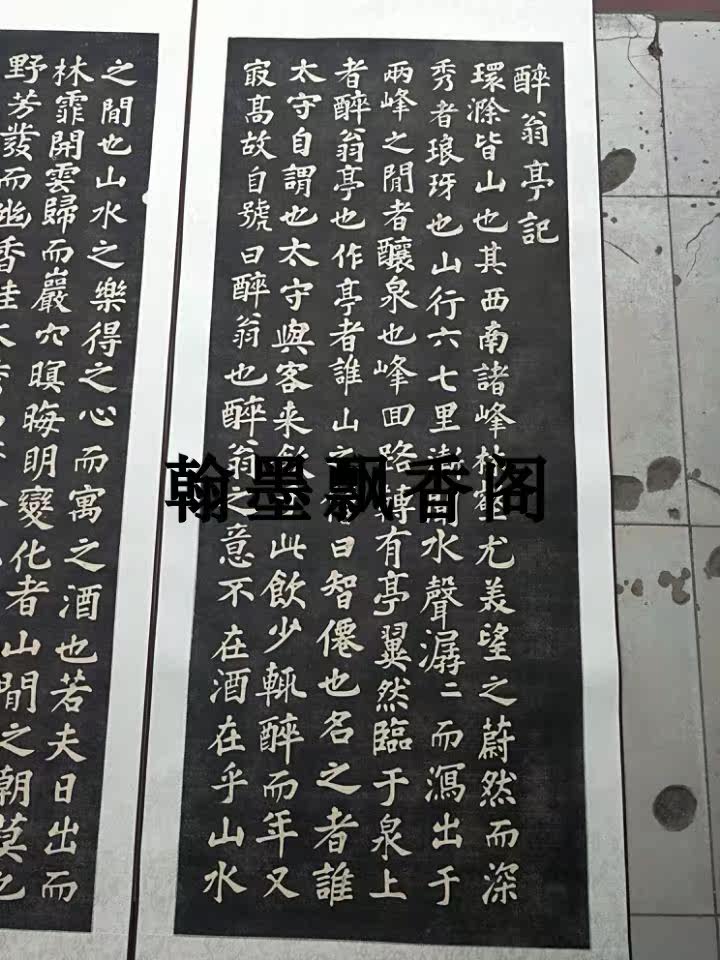 醉翁亭記
環滁皆山也其西南諸峰林壑尤美望之蔚然而深
秀者琅玡也山行六七里水聲潺二而瀉出于
兩峰之間者釀泉也峰回路轉有亭翼然臨于泉上
者醉翁亭也作亭者誰山之曰智僊也名之者誰
太守自謂也太守與客来飲此飲少輒醉而年又
冣高故自號曰醉翁也醉翁之意不在酒在乎山水
之間也山水之樂得之心而寓之酒也若夫日出而
林霏開雲歸而巖穴暝晦明變化者山間之朝莫也
野芳發而幽香佳木
翰墨飘香阁